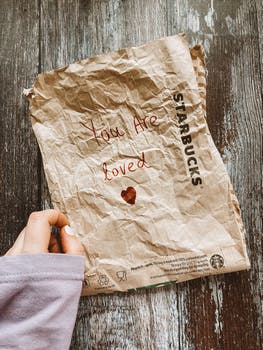 You Are
loved
STARBUCKS